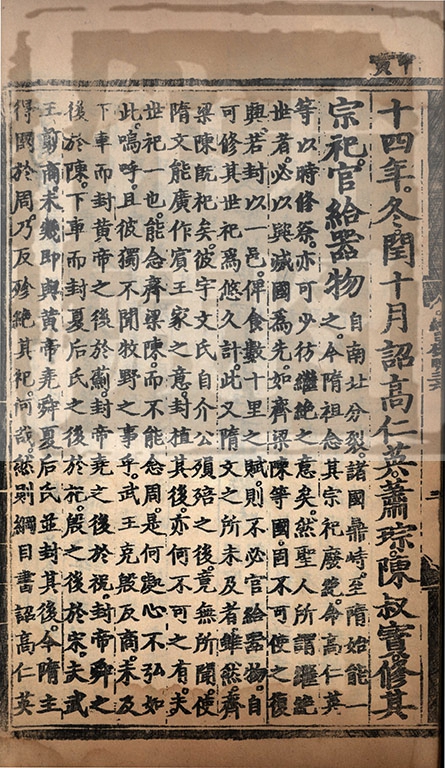 甲寅
十四年。冬閏十月詔高仁英蕭琮陳叔寶修其
宗祀官給器物
自南北分裂。諸國鼎峙。至隋始能一
之。今隋祖念其宗祀廢絶。令高仁英
等以時修祭。亦可少彷繼絶之意矣。然聖人所謂繼絶
世者。必以興滅國爲先。如齊梁陳等國。固不可使之復
興。若封以一邑。俾食數十里之賦。則不必官給器物。自
可修其世祀爲悠久計。此又隋文之所未及者。雖然。齊
梁陳旣祀矣。彼宇文氏自介公殞殕之後。竟無所聞。使
隋文能廣作賓王家之意。封植其後。亦何不可之有。夫
世祀一也。能念齊梁陳。而不能念周。是何處心不弘如
此。嗚呼。且彼獨不聞牧野之事乎。武王克殷反商。未及
下車而封黃帝之後於薊。封帝堯之後於祝。封帝舜之
後於陳。下車而封夏后氏之後於杞。殷之後於宋。夫武
王翦商。未幾即與黃帝堯舜夏后氏並封其後。今隋主
得國於周。乃反殄絶其祀。何哉。然則綱目書詔高仁英